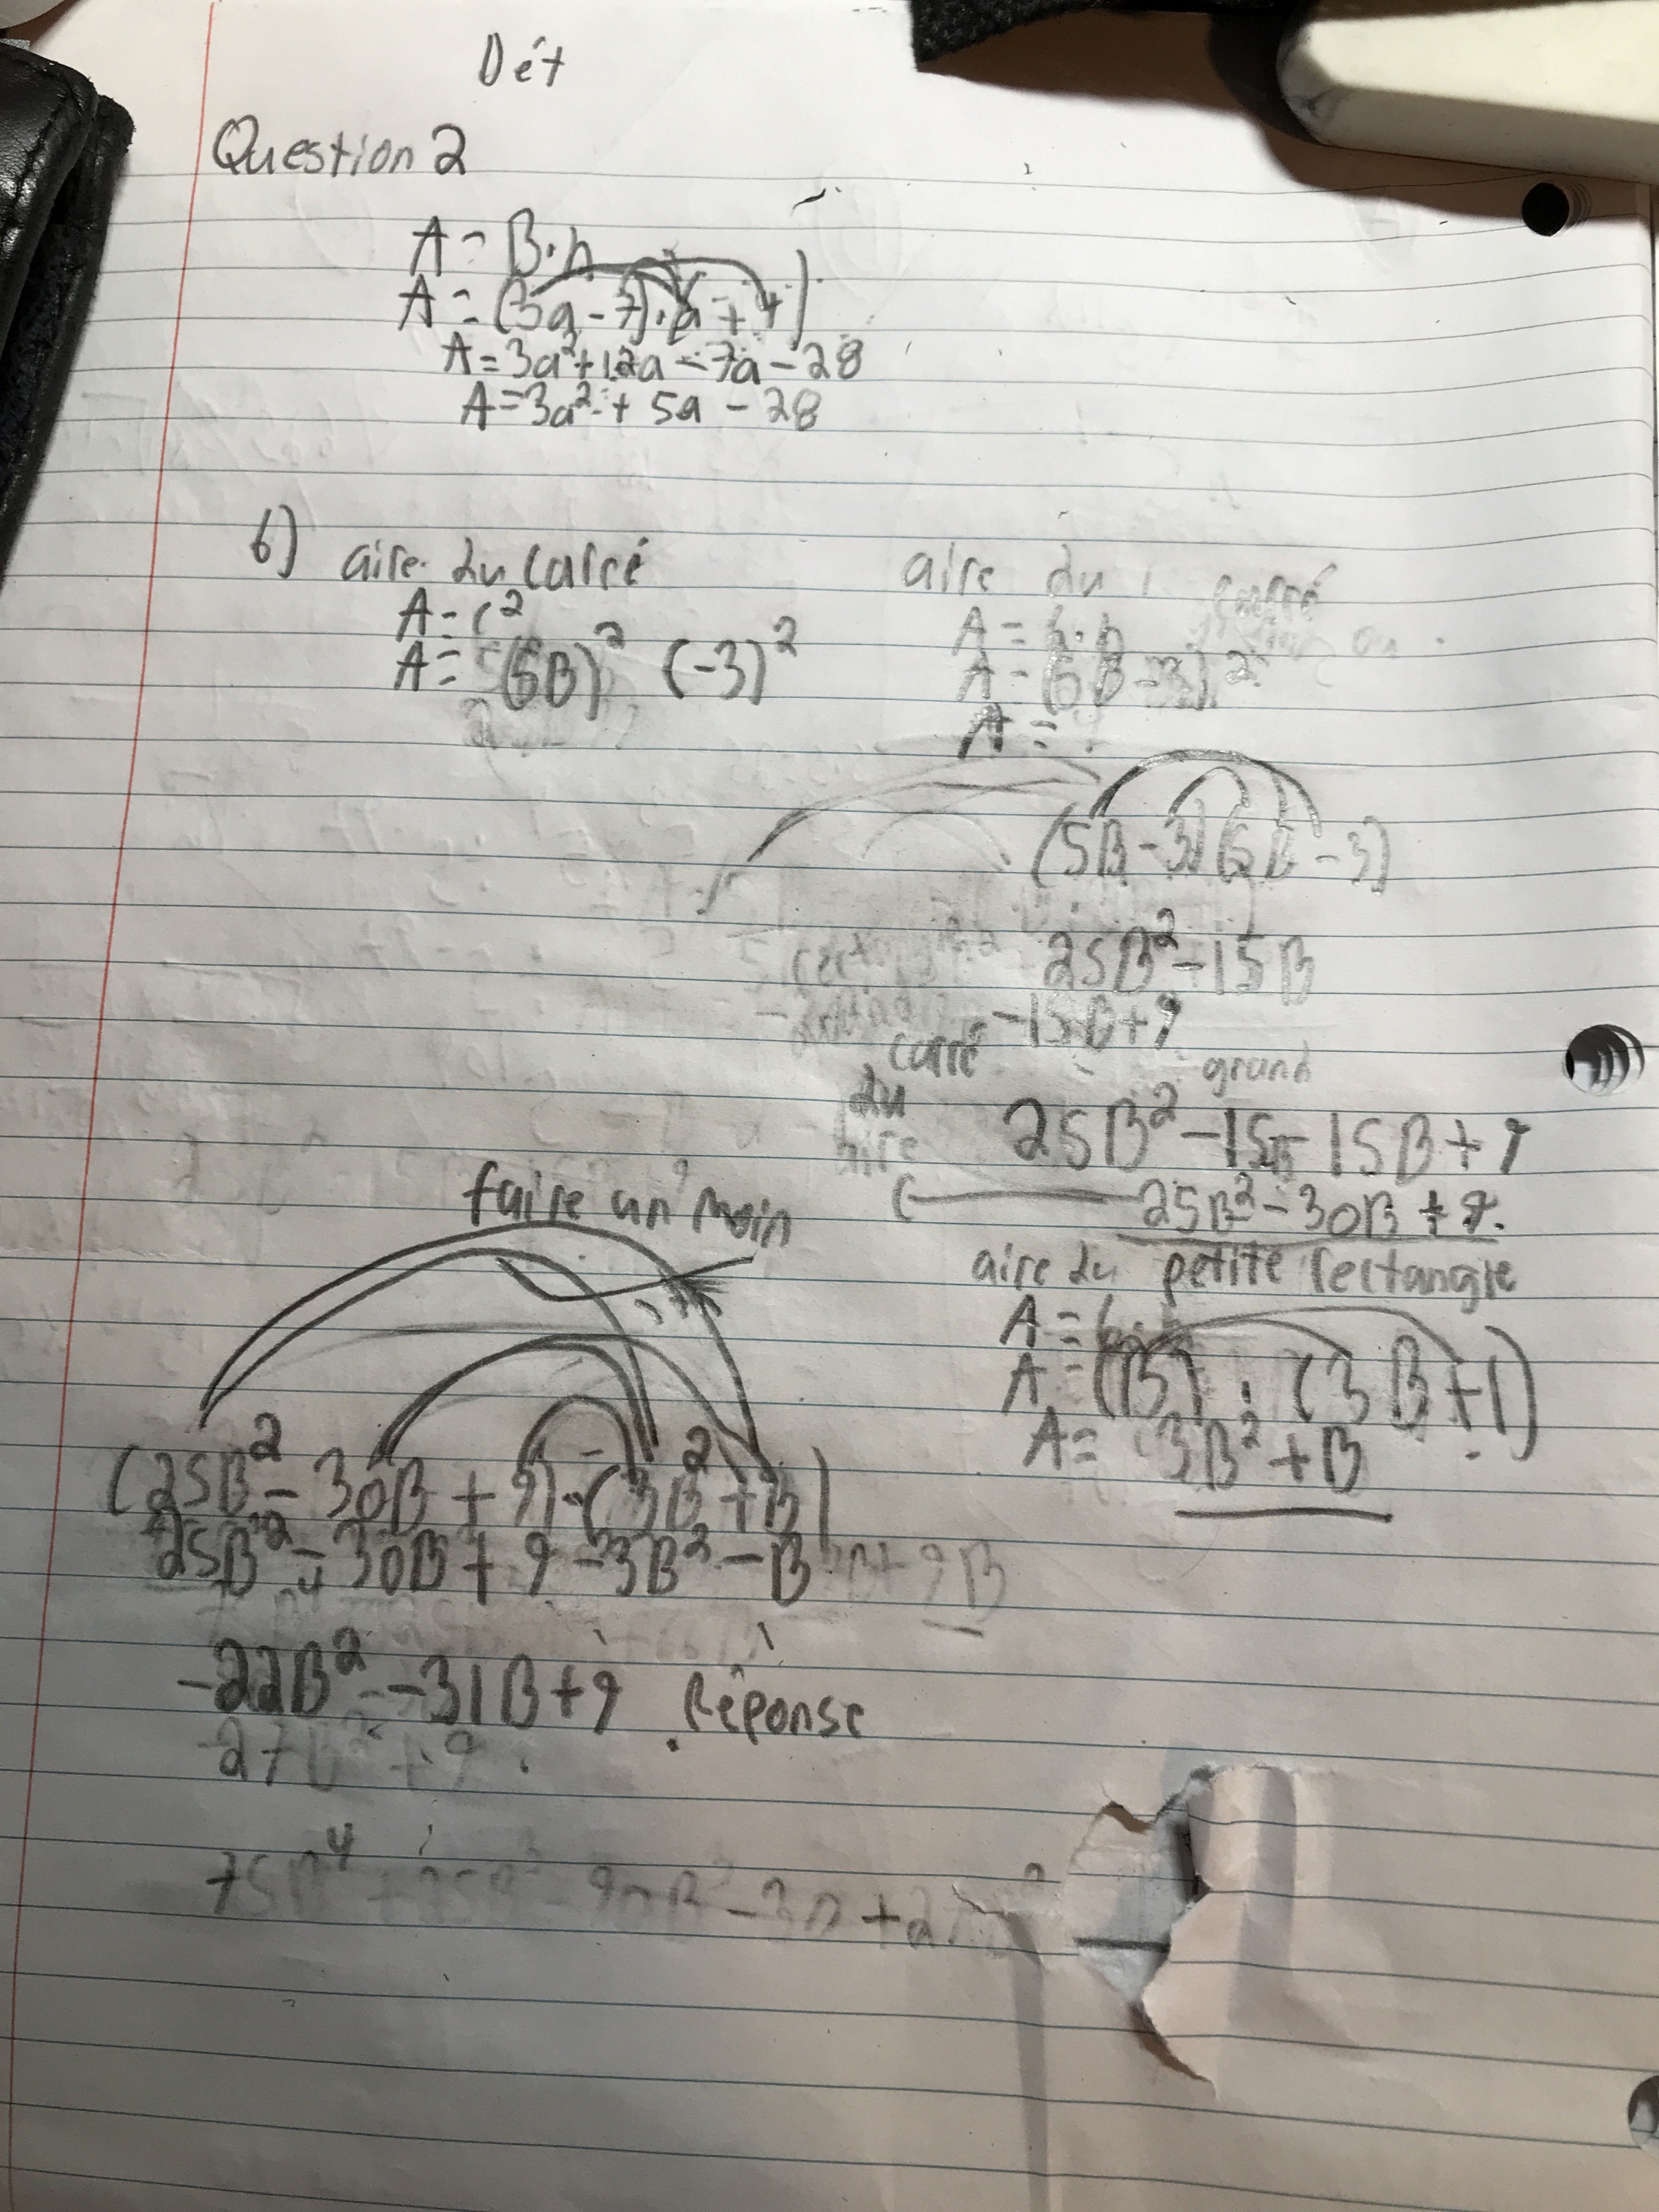 Dét
Question 2
A = B·h
A = (3a - 7)·(a + 4)
A = 3a² + 12a - 7a - 28
A = 3a² + 5a - 28
b) aire du carré
A = c²
A = (5B)² (-3)²
aire du carré
A = b·h
A = (5B - 3)²
A =
(5B - 3)(5B - 3)
25B² - 15B
-15B + 9
grand
carré
du
aire
25B² - 15B - 15B + 9
25B² - 30B + 9
aire du petite rectangle
A = b·h
A = (B) · (3B + 1)
A = 3B² + B
faire un moin
(25B² - 30B + 9) - (3B² + B)
25B² - 30B + 9 - 3B² - B
9B
-22B² - 31B + 9 Réponse
27B² + 9